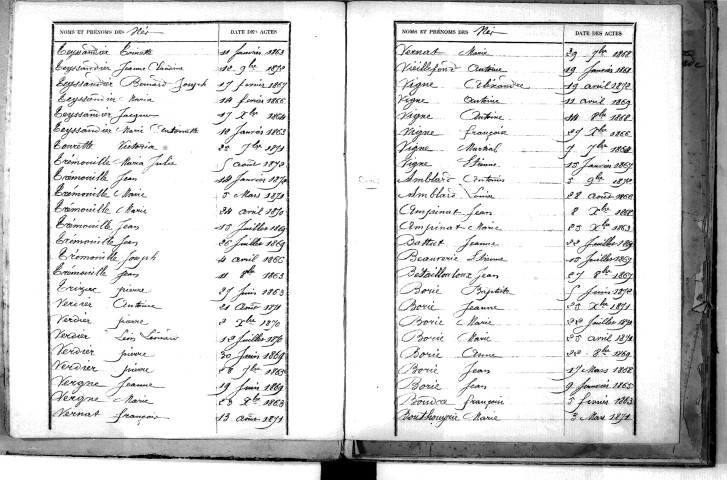 NOMS ET PRÉNOMS DES Nés DATE DES ACTES
Teyssandier Toinette 11 Janvier 1863
Teyssandier Jeanne Claudine 12 9bre 1872
Teyssandier Bernard Joseph 17 fevrier 1867
Teyssandier Maria 14 fevrier 1866
Teyssandier Jacques 17 Xbre 1864
Teyssandier Marie Antoinette 10 Janvier 1863
Tourette Victoria 22 7bre 1871
Trémouille Maria Julie 5 aout 1872
Trémouille Jean 14 Janvier 1870
Trémouille Marie 5 Mars 1871
Trémouille Marie 24 avril 1870
Trémouille Jean 15 Juillet 1869
Trémouille Jean 26 Juillet 1869
Trémouille Joseph 4 avril 1866
Trémouille Jean 11 8bre 1863
pierre 27 Juin 1863
Verdier Antoine 21 Aout 1871
Verdier pierre 2 Xbre 1870
Verdier Léon Léonard 12 Juillet 1870
Verdier pierre 30 Juin 1869
Verdier pierre 28 7bre 1865
Vergne Jeanne 19 Juin 1869
Vergne Marie 28 Xbre 1863
Vernat françois 13 aout 1871
NOMS ET PRÉNOMS DES Nés DATE DES ACTES
Vernat Marie 29 9bre 1868
Vieillefond Antoine 19 Janvier 1868
Vigne Alexandre 19 avril 1872
Vigne Antoine 11 avril 1869
Vigne Antoine 14 8bre 1868
Vigne françois 27 Xbre 1866
Vigne Martial 7 7bre 1864
Vigne Etienne 15 Janvier 1867
Amblard Antoine 5 9bre 1872
Amblard 28 Aout 1866
Ampinat Jean 8 Xbre 1868
Ampinat Marie 25 Xbre 1863
Battut Jeanne 22 Juillet 1869
Beauverie Etienne 15 Juillet 1867
Betaillouloux Jean 27 8bre 1867
Borie Baptiste 5 Juin 1872
Borie Jeanne 25 Xbre 1871
Borie Marie 22 Juillet 1871
Borie Marie 25 avril 1871
Borie Anne 22 8bre 1869
Borie Jean 17 Mars 1868
Borie Jean 9 Janvier 1865
françois 5 fevrier 1863
Bouthouyrie Marie 3 Mars 1871